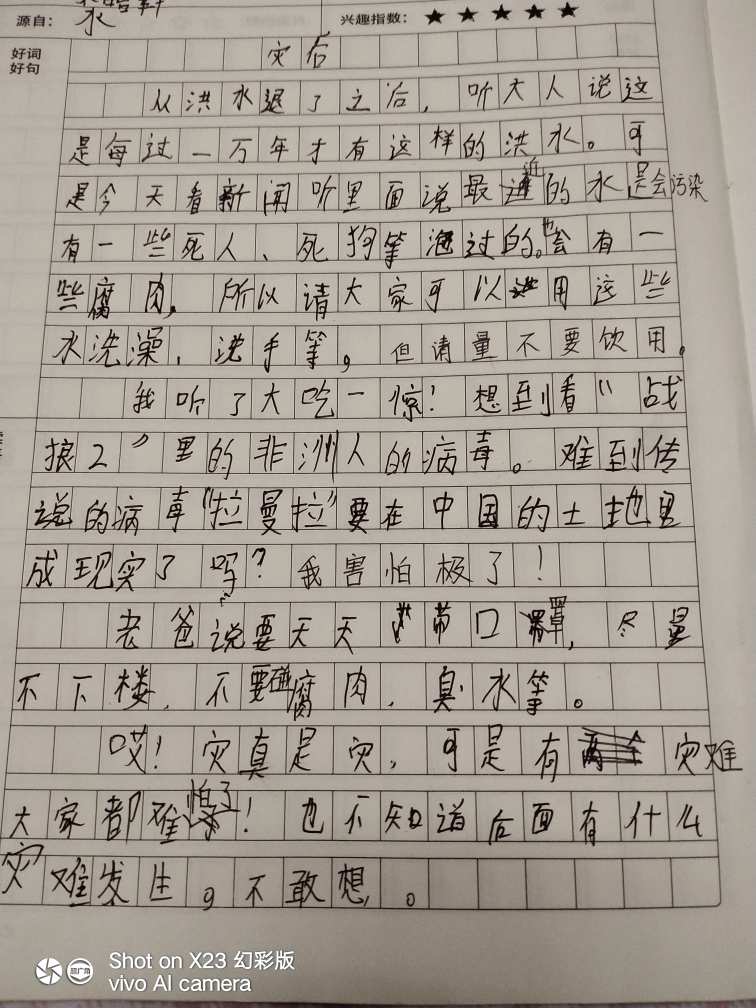 源自：
兴趣指数：★★★★★
好词
好句
灾后
从洪水退了之后，听大人说这
是每过一万年才有这样的洪水。可
是今天看新闻听里面说最近的水是会污染
有一些死人、死狗等泡过的。也会有一
些腐肉，所以请大家可以用这些
水洗澡，洗手等。但请量不要饮用。
我听了大吃一惊！想到看“战
狼2”里的非洲人的病毒。难到传
说的病毒“拉曼拉”要在中国的土地里
成现实了吗？我害怕极了！
老爸说要天天带口罩，尽量
不下楼，不要碰腐肉，臭水等。
哎！灾真是灾，可是有灾难
大家都难怕了！也不知道后面有什么
灾难发生。不敢想。
Shot on X23 幻彩版
vivo AI camera